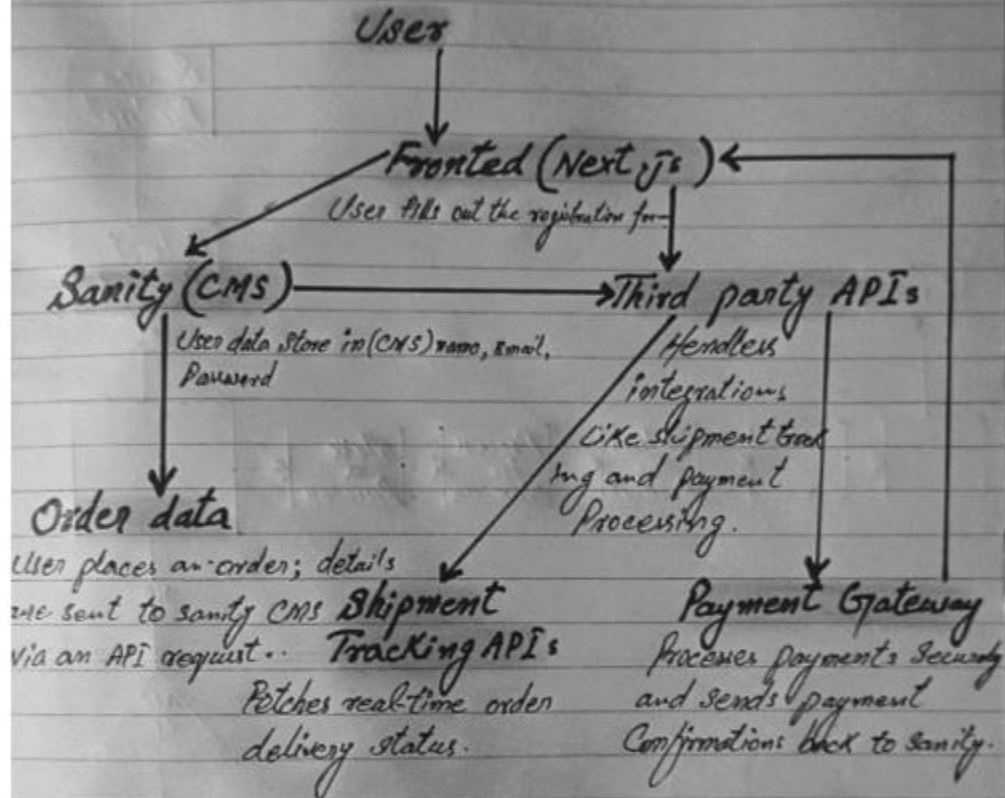 User
Fronted (Next js)
User fills out the registration for
Sanity (CMS)
Third party APIs
User data store in (CMS) name, Email,
Password
Hendless
integrations
Like shipment track
ing and payment
Processing.
Order data
User places an order; details
are sent to sanity CMS
via an API request..
Shipment
Tracking APIs
Fetches real-time order
delivery status.
Payment Gateway
Processes payments securely
and sends payment
Confirmations back to sanity.